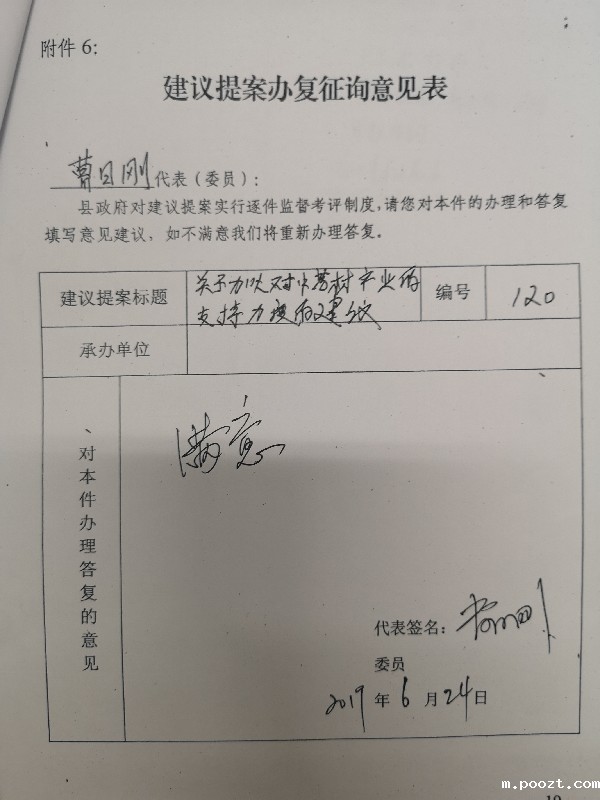 附件 6:
建议提案办复征询意见表
曹日刚代表（委员）:
县政府对建议提案实行逐件监督考评制度,请您对本件的办理和答复
填写意见建议，如不满意我们将重新办理答复。
建议提案标题
关于加大对中药材产业的
支持力度的建议
编号
120
承办单位
对本件办理答复的意见
满意
代表签名:
委员
2019 年 6 月 24 日
m.poozt.com